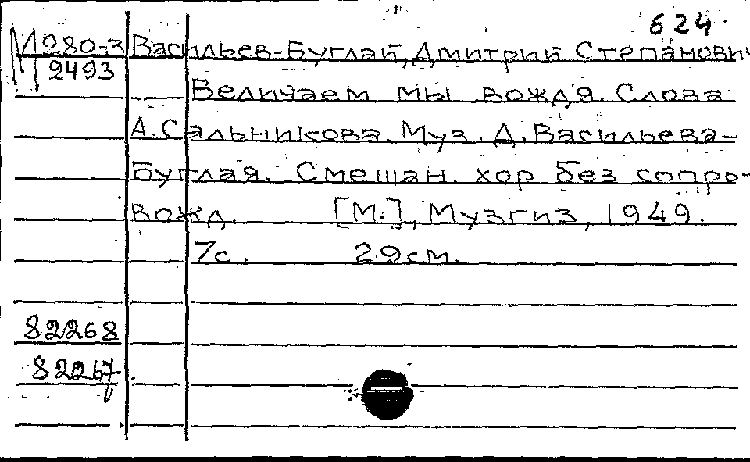 624
М 280-3 Васильев-Буглай, Дмитрий Степанович
2493
Величаем мы вождя. Слова
А. Сальникова. Муз. Д. Васильева-
Буглая. Смешан. хор без сопро-
вожд. [М.], Музгиз, 1949.
7с. 29см.
82268
82267